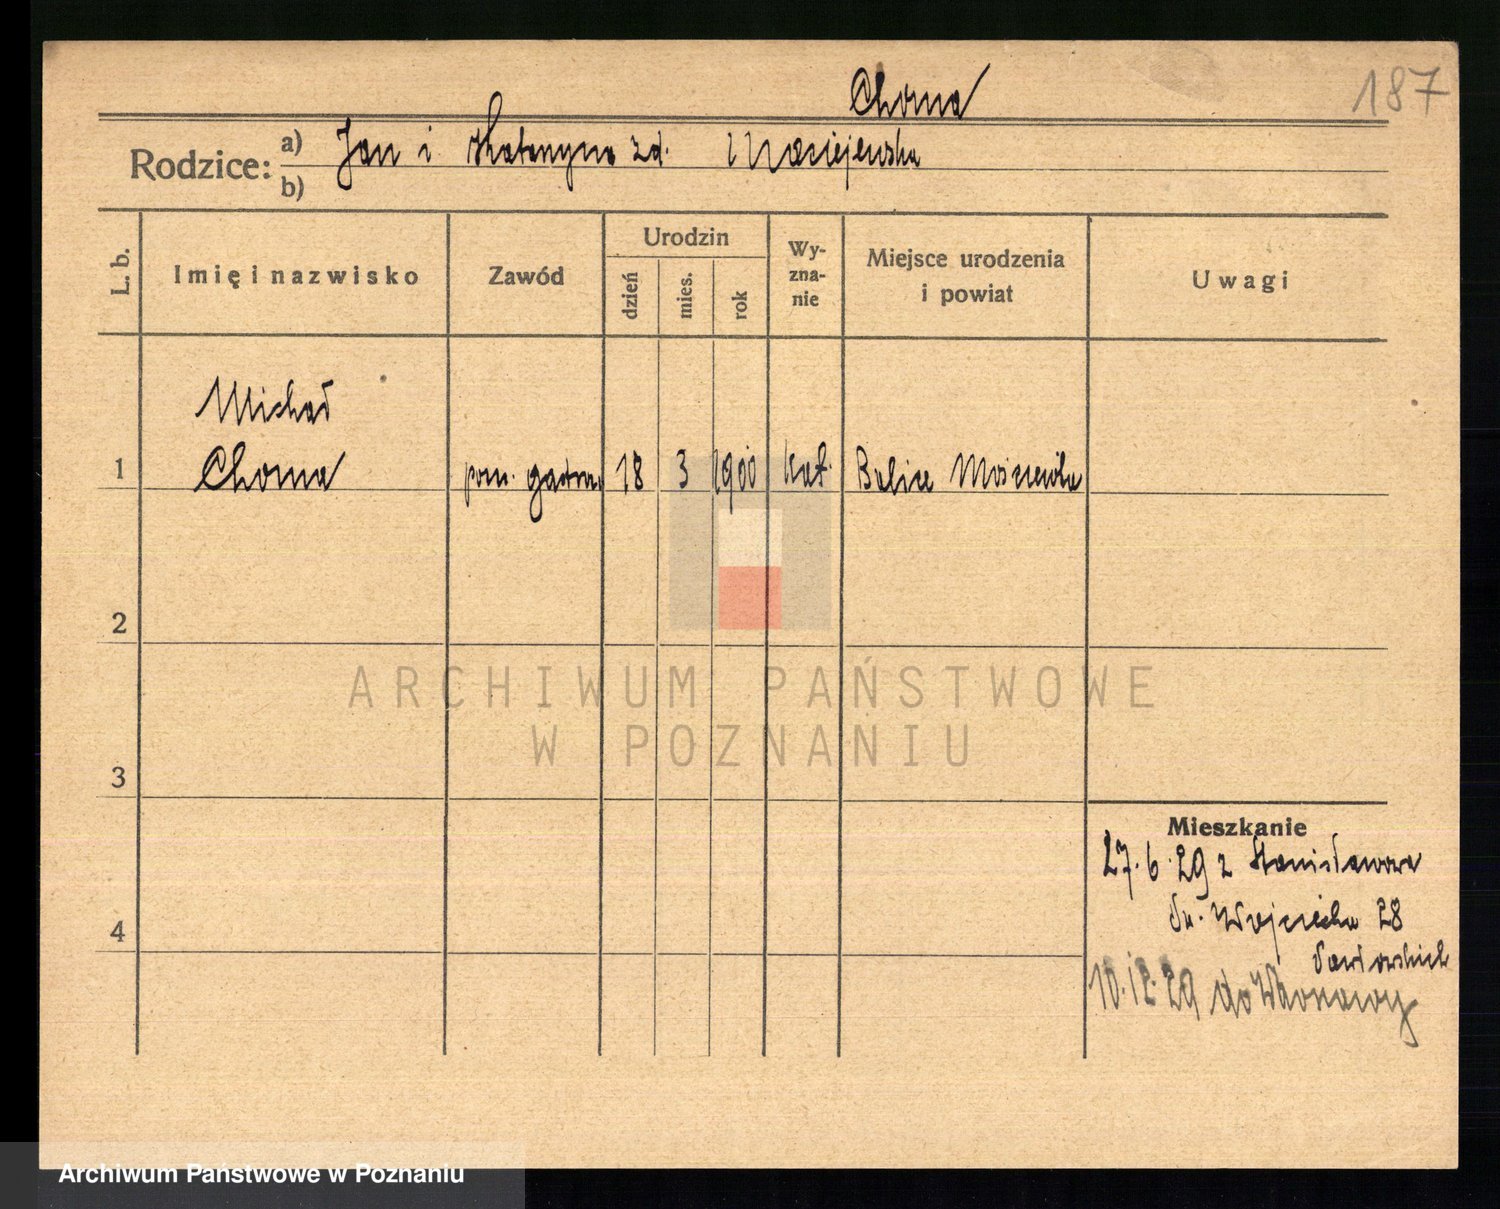 187
Choma
Rodzice: a) Jan i Katarzyna zd. Maciejewska
b)
L. b.
Imię i nazwisko
Zawód
Urodzin
dzień
mies.
rok
Wy-
zna-
nie
Miejsce urodzenia
i powiat
Uwagi
Michał
1 Choma pom. 18 3 1900 kat. Balice Mościska
2
3
4
Mieszkanie
27.6.29 z Stanisławowa
Św. Wojciecha 28
10.12.29 do Warszawy
ARCHIWUM PAŃSTWOWE
W POZNANIU
Archiwum Państwowe w Poznaniu